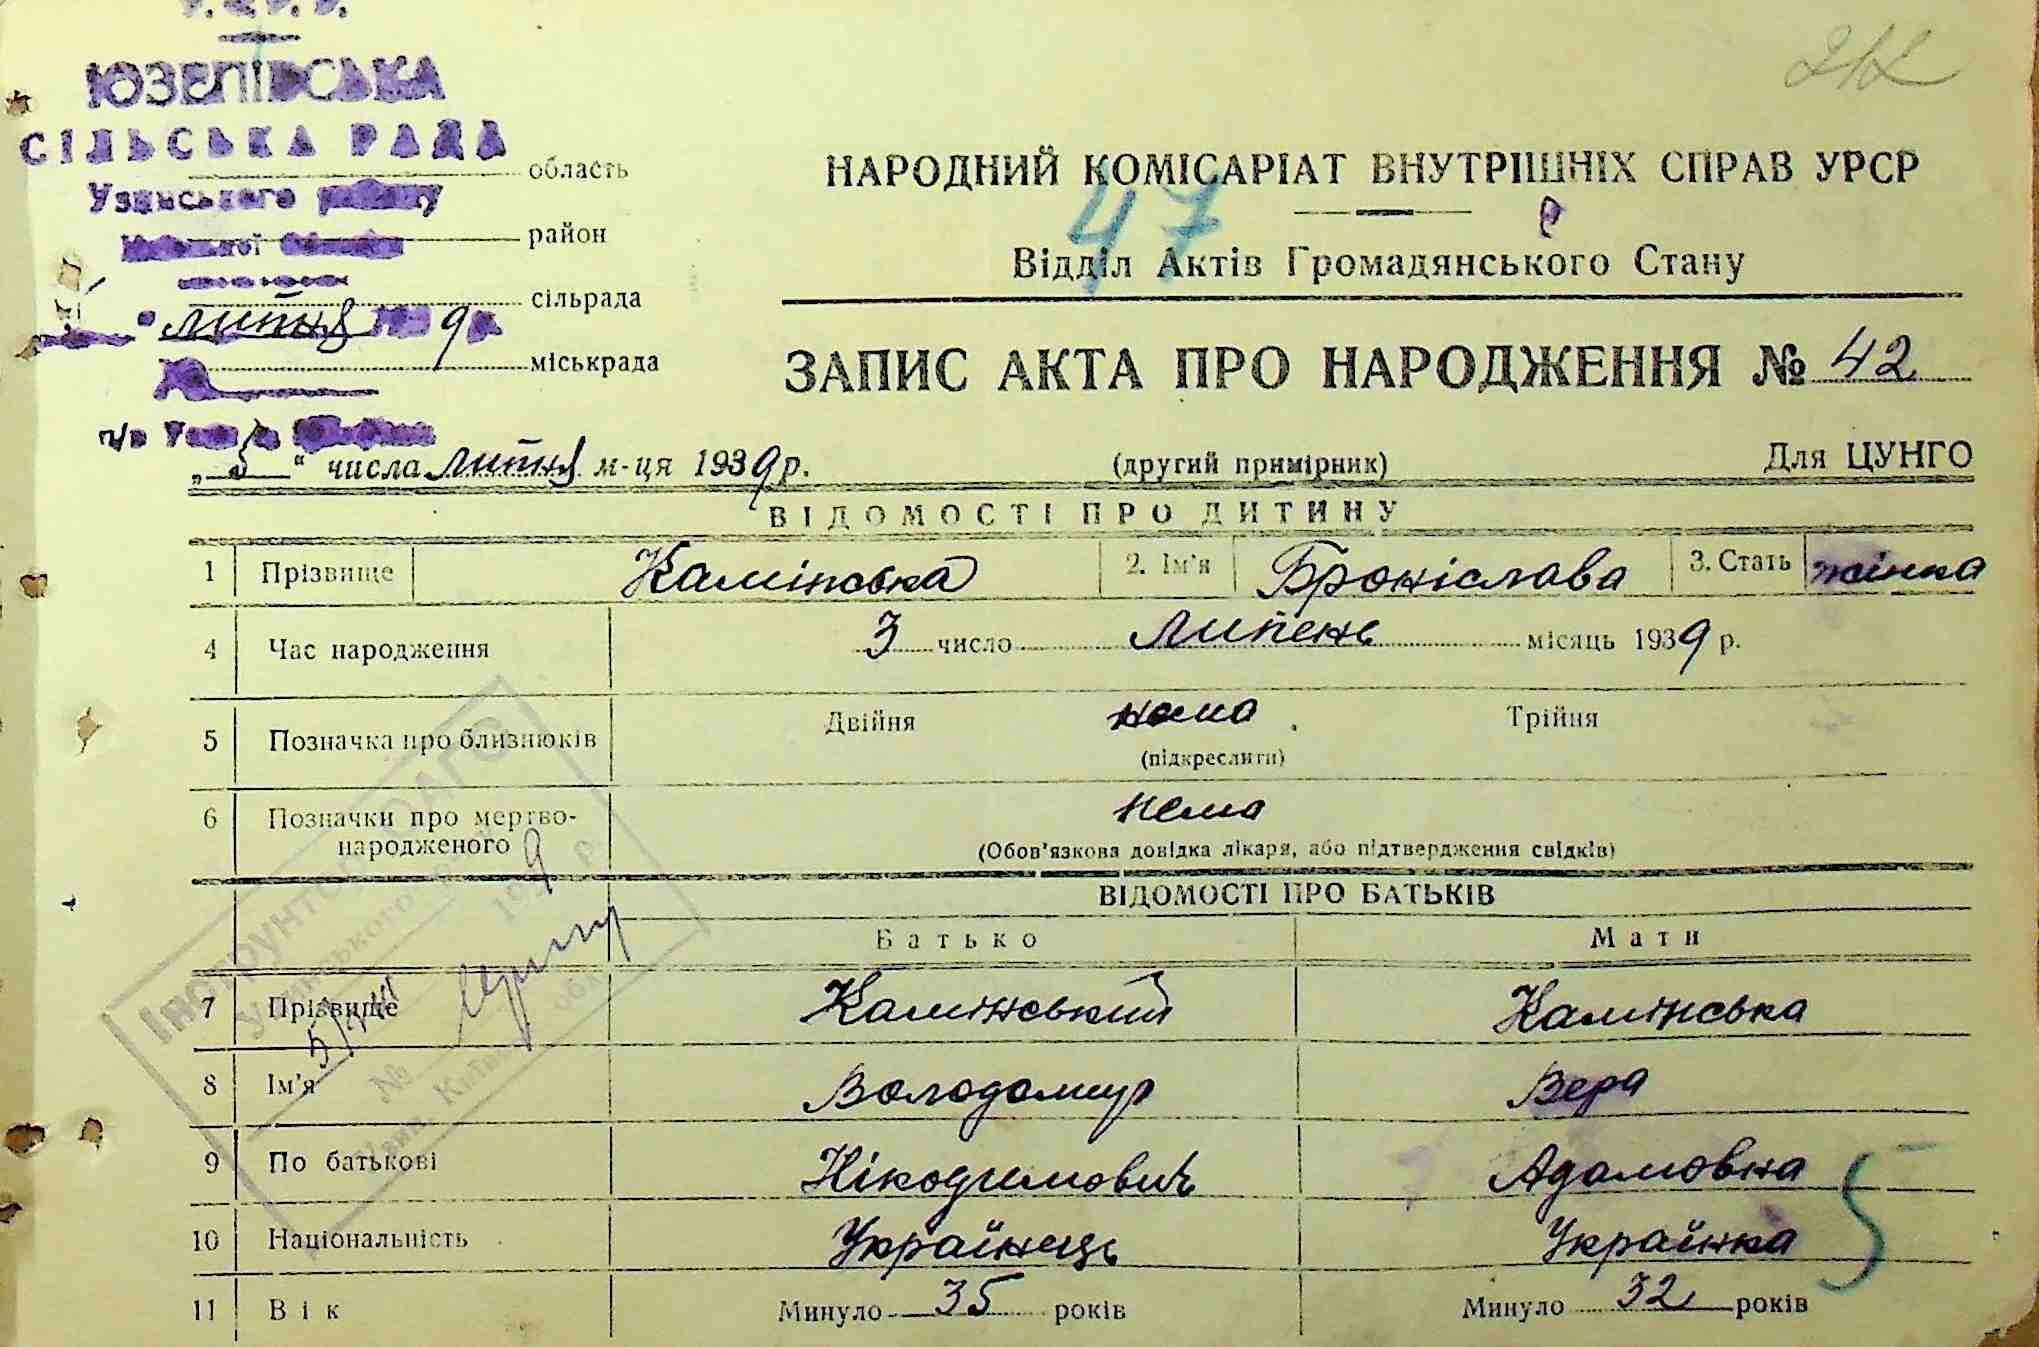 ЮЗЕПІВСЬКА
СІЛЬСЬКА РАДА
область
Узинського району
район
сільрада
липня 9
міськрада
212
НАРОДНИЙ КОМІСАРІАТ ВНУТРІШНІХ СПРАВ УРСР
47
Відділ Актів Громадянського Стану
ЗАПИС АКТА ПРО НАРОДЖЕННЯ № 42
п/в
„5“ числа липня м-ця 1939 р. (другий примірник) Для ЦУНГО
ВІДОМОСТІ ПРО ДИТИНУ
1 Прізвище Камінська 2. Ім'я Броніслава 3. Стать жінка
4 Час народження 3 число липень місяць 1939 р.
5 Позначка про близнюків Двійня нема Трійня
(підкреслити)
6 Позначки про мертво-народженого нема
(Обов'язкова довідка лікаря, або підтвердження свідків)
ВІДОМОСТІ ПРО БАТЬКІВ
Батько Мати
7 Прізвище Камінський Камінська
8 Ім'я Володомир Вера
9 По батькові Нікодимович Адамовна
5
10 Національність Українець Українка
11 Вік Минуло 35 років Минуло 32 років